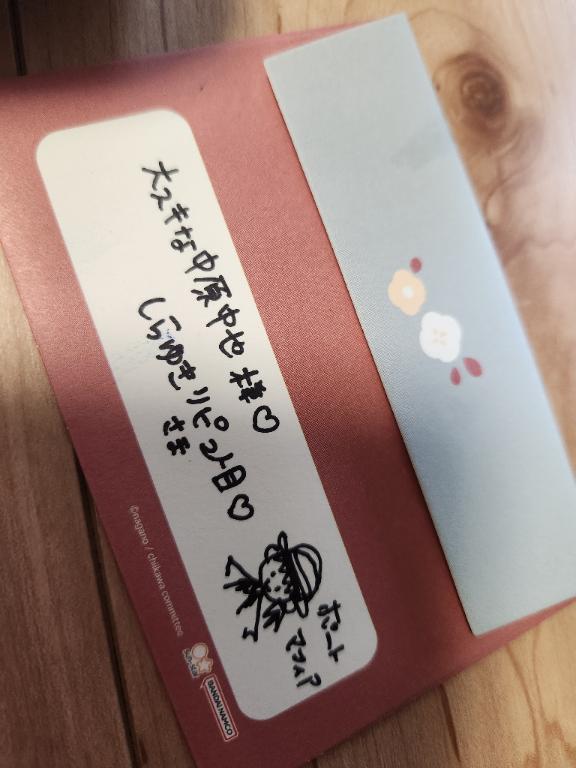 大スキな中原中也様♡
しらゆきリピ2日♡
さま
ポート
マフィア
©nagano / chiikawa committee
BANDAI NAMCO